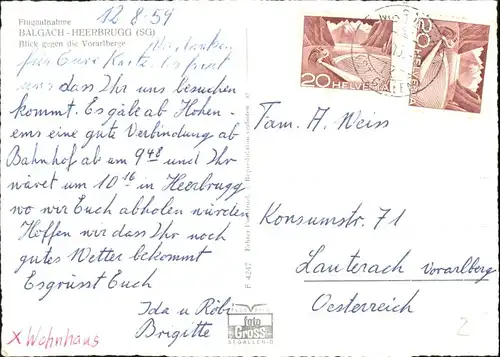 12.8.59
Flugaufnahme
BALGACH-HEERBRUGG (SG)
Blick gegen die Vorarlberge
Wir danken
für Eure Karte. Es freut
uns dass Ihr uns besuchen
kommt. Es gäbe ab Hohen-
ems eine gute Verbindung ab
Bahnhof ab um 9 48 und Ihr
wäret um 10 16 in Heerbrugg
wo wir Euch abholen würden
Hoffen wir dass Ihr noch
gutes Wetter bekommt
Es grüsst Euch
Ida u Röbi
Brigitte
x Wohnhaus
F 4247
foto
Gross
ST. GALLEN-O
20 HELVETIA
20 HELVETIA
Fam. A. Weiss
Konsumstr. 71
Lauterach Vorarlberg
Oesterreich
2